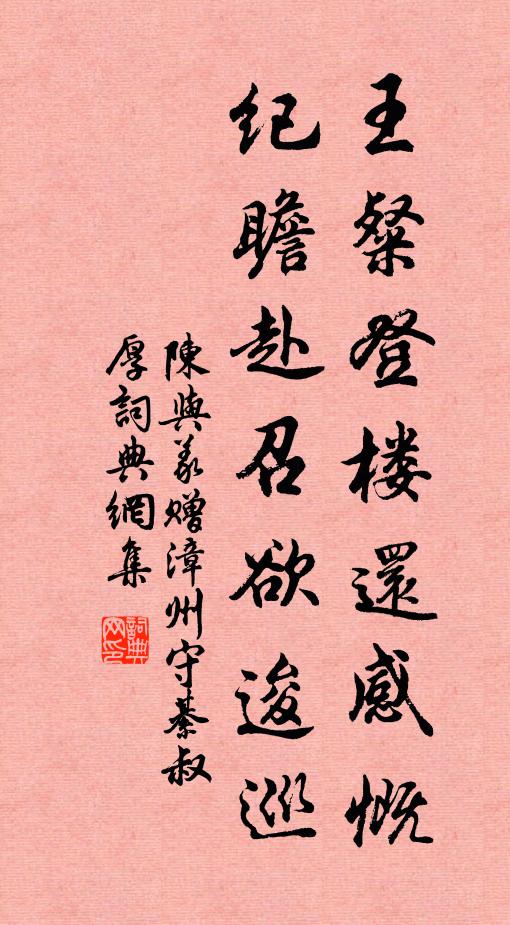 王粲登楼還感慨
紀瞻赴召欲逡巡
陳與義贈漳州守綦叔
厚詞典網集
詞典网印